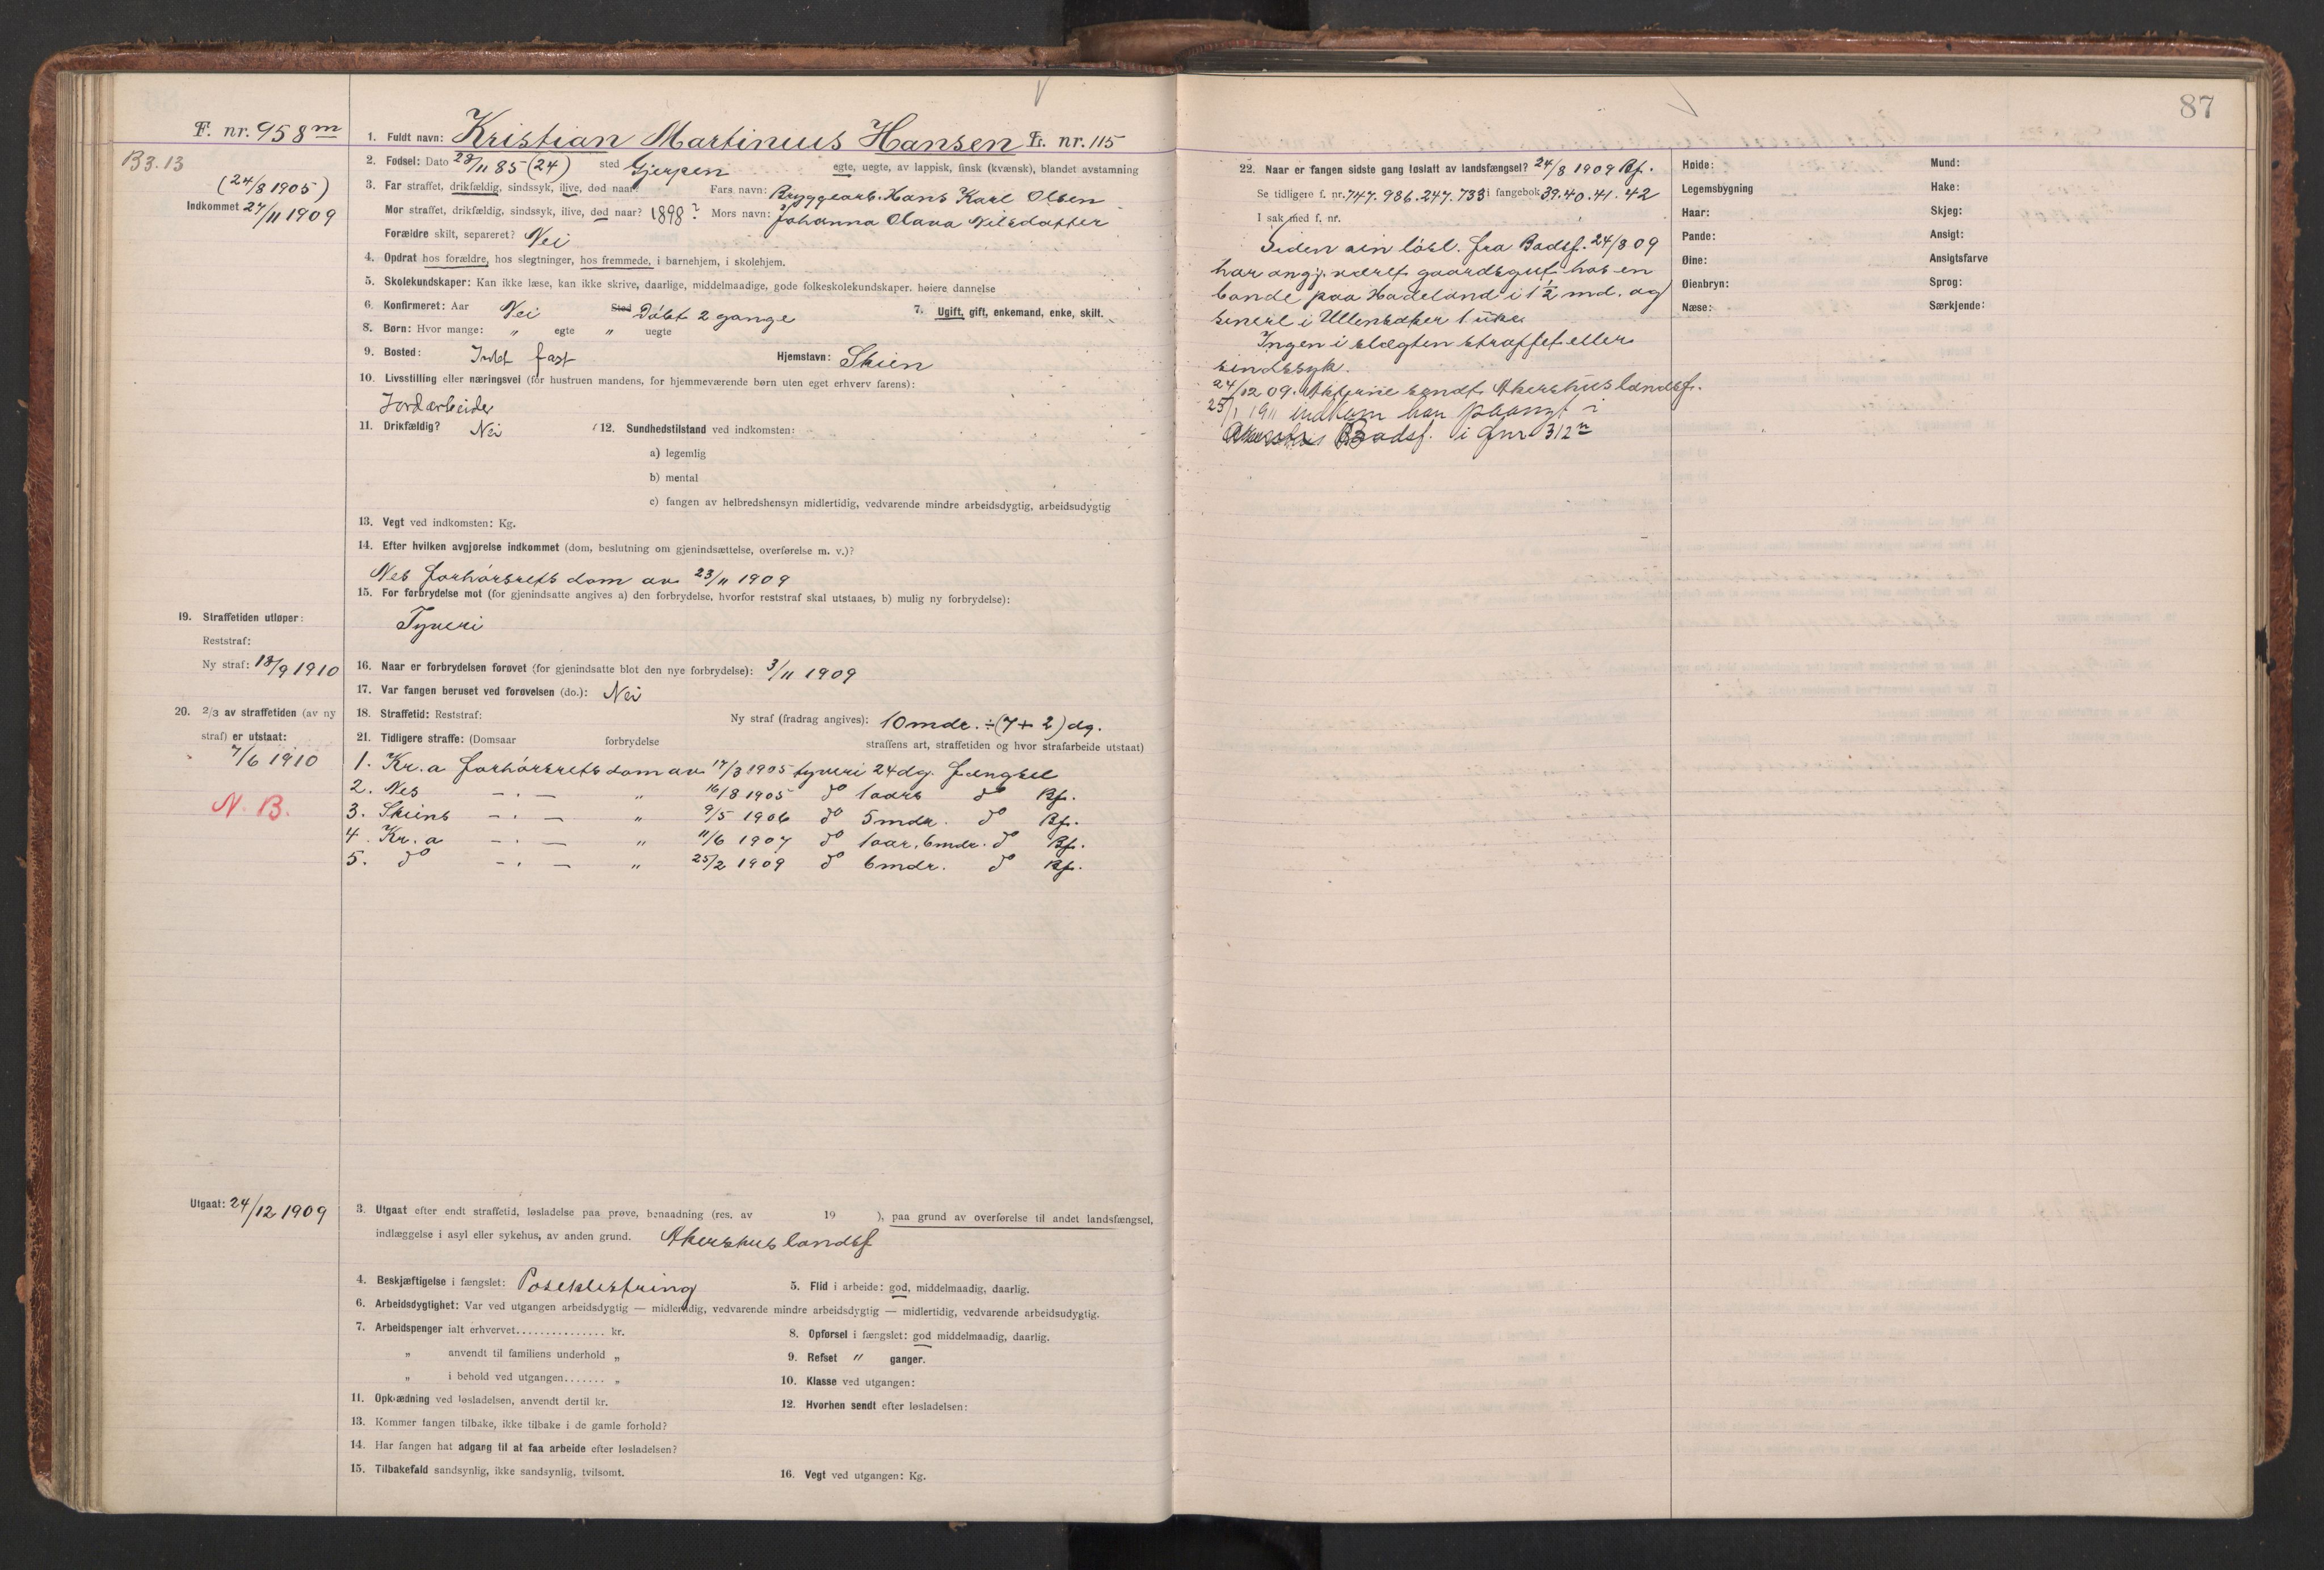 87
F. nr. 958 m
B3.13
(24/8 1905)
Indkommet 27/11 1909
1. Fuldt navn: Kristian Martinius Hansen L. nr. 115
2. Fødsel: Dato 28/11 85 (24) sted Gjerpen egte, uegte, av lappisk, finsk (kvænsk), blandet avstamning
3. Far straffet, drikfældig, sindssyk, ilive, død naar? Fars navn: Bryggearb. Hans Karl Olsen
Mor straffet, drikfældig, sindssyk, ilive, død naar? 1898? Mors navn: Johanna Olava Nilsdatter
Forældre skilt, separeret? Nei
4. Opdrat hos forældre, hos slegtninger, hos fremmede, i barnehjem, i skolehjem.
5. Skolekundskaper: Kan ikke læse, kan ikke skrive, daarlige, middelmaadige, gode folkeskolekundskaper. høiere dannelse
6. Konfirmeret: Aar Nei Sted Døbt 2 gange 7. Ugift, gift, enkemand, enke, skilt.
8. Børn: Hvor mange: " egte " uegte
9. Bosted: Intet fast Hjemstavn: Skien
10. Livsstilling eller næringsvei (for hustruen mandens, for hjemmeværende børn uten eget erhverv farens):
Jordarbeider
11. Drikfældig? Nei 12. Sundhedstilstand ved indkomsten:
a) legemlig
b) mental
c) fangen av helbredshensyn midlertidig, vedvarende mindre arbeidsdygtig, arbeidsudygtig
13. Vegt ved indkomsten: Kg.
14. Efter hvilken avgjørelse indkommet (dom, beslutning om gjenindsættelse, overførelse m. v.)?
Nes forhørsrets dom av 23/11 1909
15. For forbrydelse mot (for gjenindsatte angives a) den forbrydelse, hvorfor reststraf skal utstaaes, b) mulig ny forbrydelse):
Tyveri
19. Straffetiden utløper:
Reststraf:
Ny straf: 18/9 1910
16. Naar er forbrydelsen forøvet (for gjenindsatte blot den nye forbrydelse): 3/11 1909
17. Var fangen beruset ved forøvelsen (do.): Nei
20. 2/3 av straffetiden (av ny
straf) er utstaat:
7/6 1910
N. B.
18. Straffetid: Reststraf: Ny straf (fradrag angives): 10 mdr. ÷ (7 + 2) dg.
21. Tidligere straffe: (Domsaar forbrydelse straffens art, straffetiden og hvor strafarbeide utstaat)
1. Kr.a forhørsrets dom av 17/3 1905 tyveri 24 dg. fængsel
2. Nes - . - " 16/8 1905 do 1 aars do Bf.
3. Skiens - . - " 9/5 1906 do 5 mdr. do Bf.
4. Kr.a - . - " 11/6 1907 do 1 aar. 6 mdr. do Bf.
5. do - . - " 25/2 1909 do 6 mdr. do Bf.
Utgaat: 24/12 1909
3. Utgaat efter endt straffetid, løsladelse paa prøve, benaadning (res. av 19 ), paa grund av overførelse til andet landsfængsel,
indlæggelse i asyl eller sykehus, av anden grund. Akershus landsf.
4. Beskjæftigelse i fængslet: Poseklistring 5. Flid i arbeide: god, middelmaadig, daarlig.
6. Arbeidsdygtighet: Var ved utgangen arbeidsdygtig — midlertidig, vedvarende mindre arbeidsdygtig — midlertidig, vedvarende arbeidsudygtig.
7. Arbeidspenger ialt erhvervet............... kr. 8. Opførsel i fængslet: god middelmaadig, daarlig.
" anvendt til familiens underhold " 9. Refset " ganger.
" i behold ved utgangen....... " 10. Klasse ved utgangen:
11. Opklædning ved løsladelsen, anvendt dertil kr. 12. Hvorhen sendt efter løsladelsen:
13. Kommer fangen tilbake, ikke tilbake i de gamle forhold?
14. Har fangen hat adgang til at faa arbeide efter løsladelsen?
15. Tilbakefald sandsynlig, ikke sandsynlig, tvilsomt. 16. Vegt ved utgangen: Kg.
22. Naar er fangen sidste gang løslatt av landsfængsel? 24/8 1909 Bf.
Se tidligere f. nr. 747. 986. 247. 733 i fangebok 39. 40. 41. 42
I sak med f. nr.
Siden sin løsl. fra Bodsf. 24/8 09
har angiv. været gaardsgut hos en
bonde paa Hadeland i 1 1/2 md. og
senere i Ullensaker 1 uke.
Ingen i slægten straffet eller
sindssyk.
24/12 09. Akterne sendt Akershus landsf.
25/1 1911 indkom han paanyt i
Bodsf. i fnr 312 n
Høide: Mund:
Legemsbygning Hake:
Haar: Skjeg:
Pande: Ansigt:
Øine: Ansigtsfarve
Øienbryn: Sprog:
Næse: Særkjende: